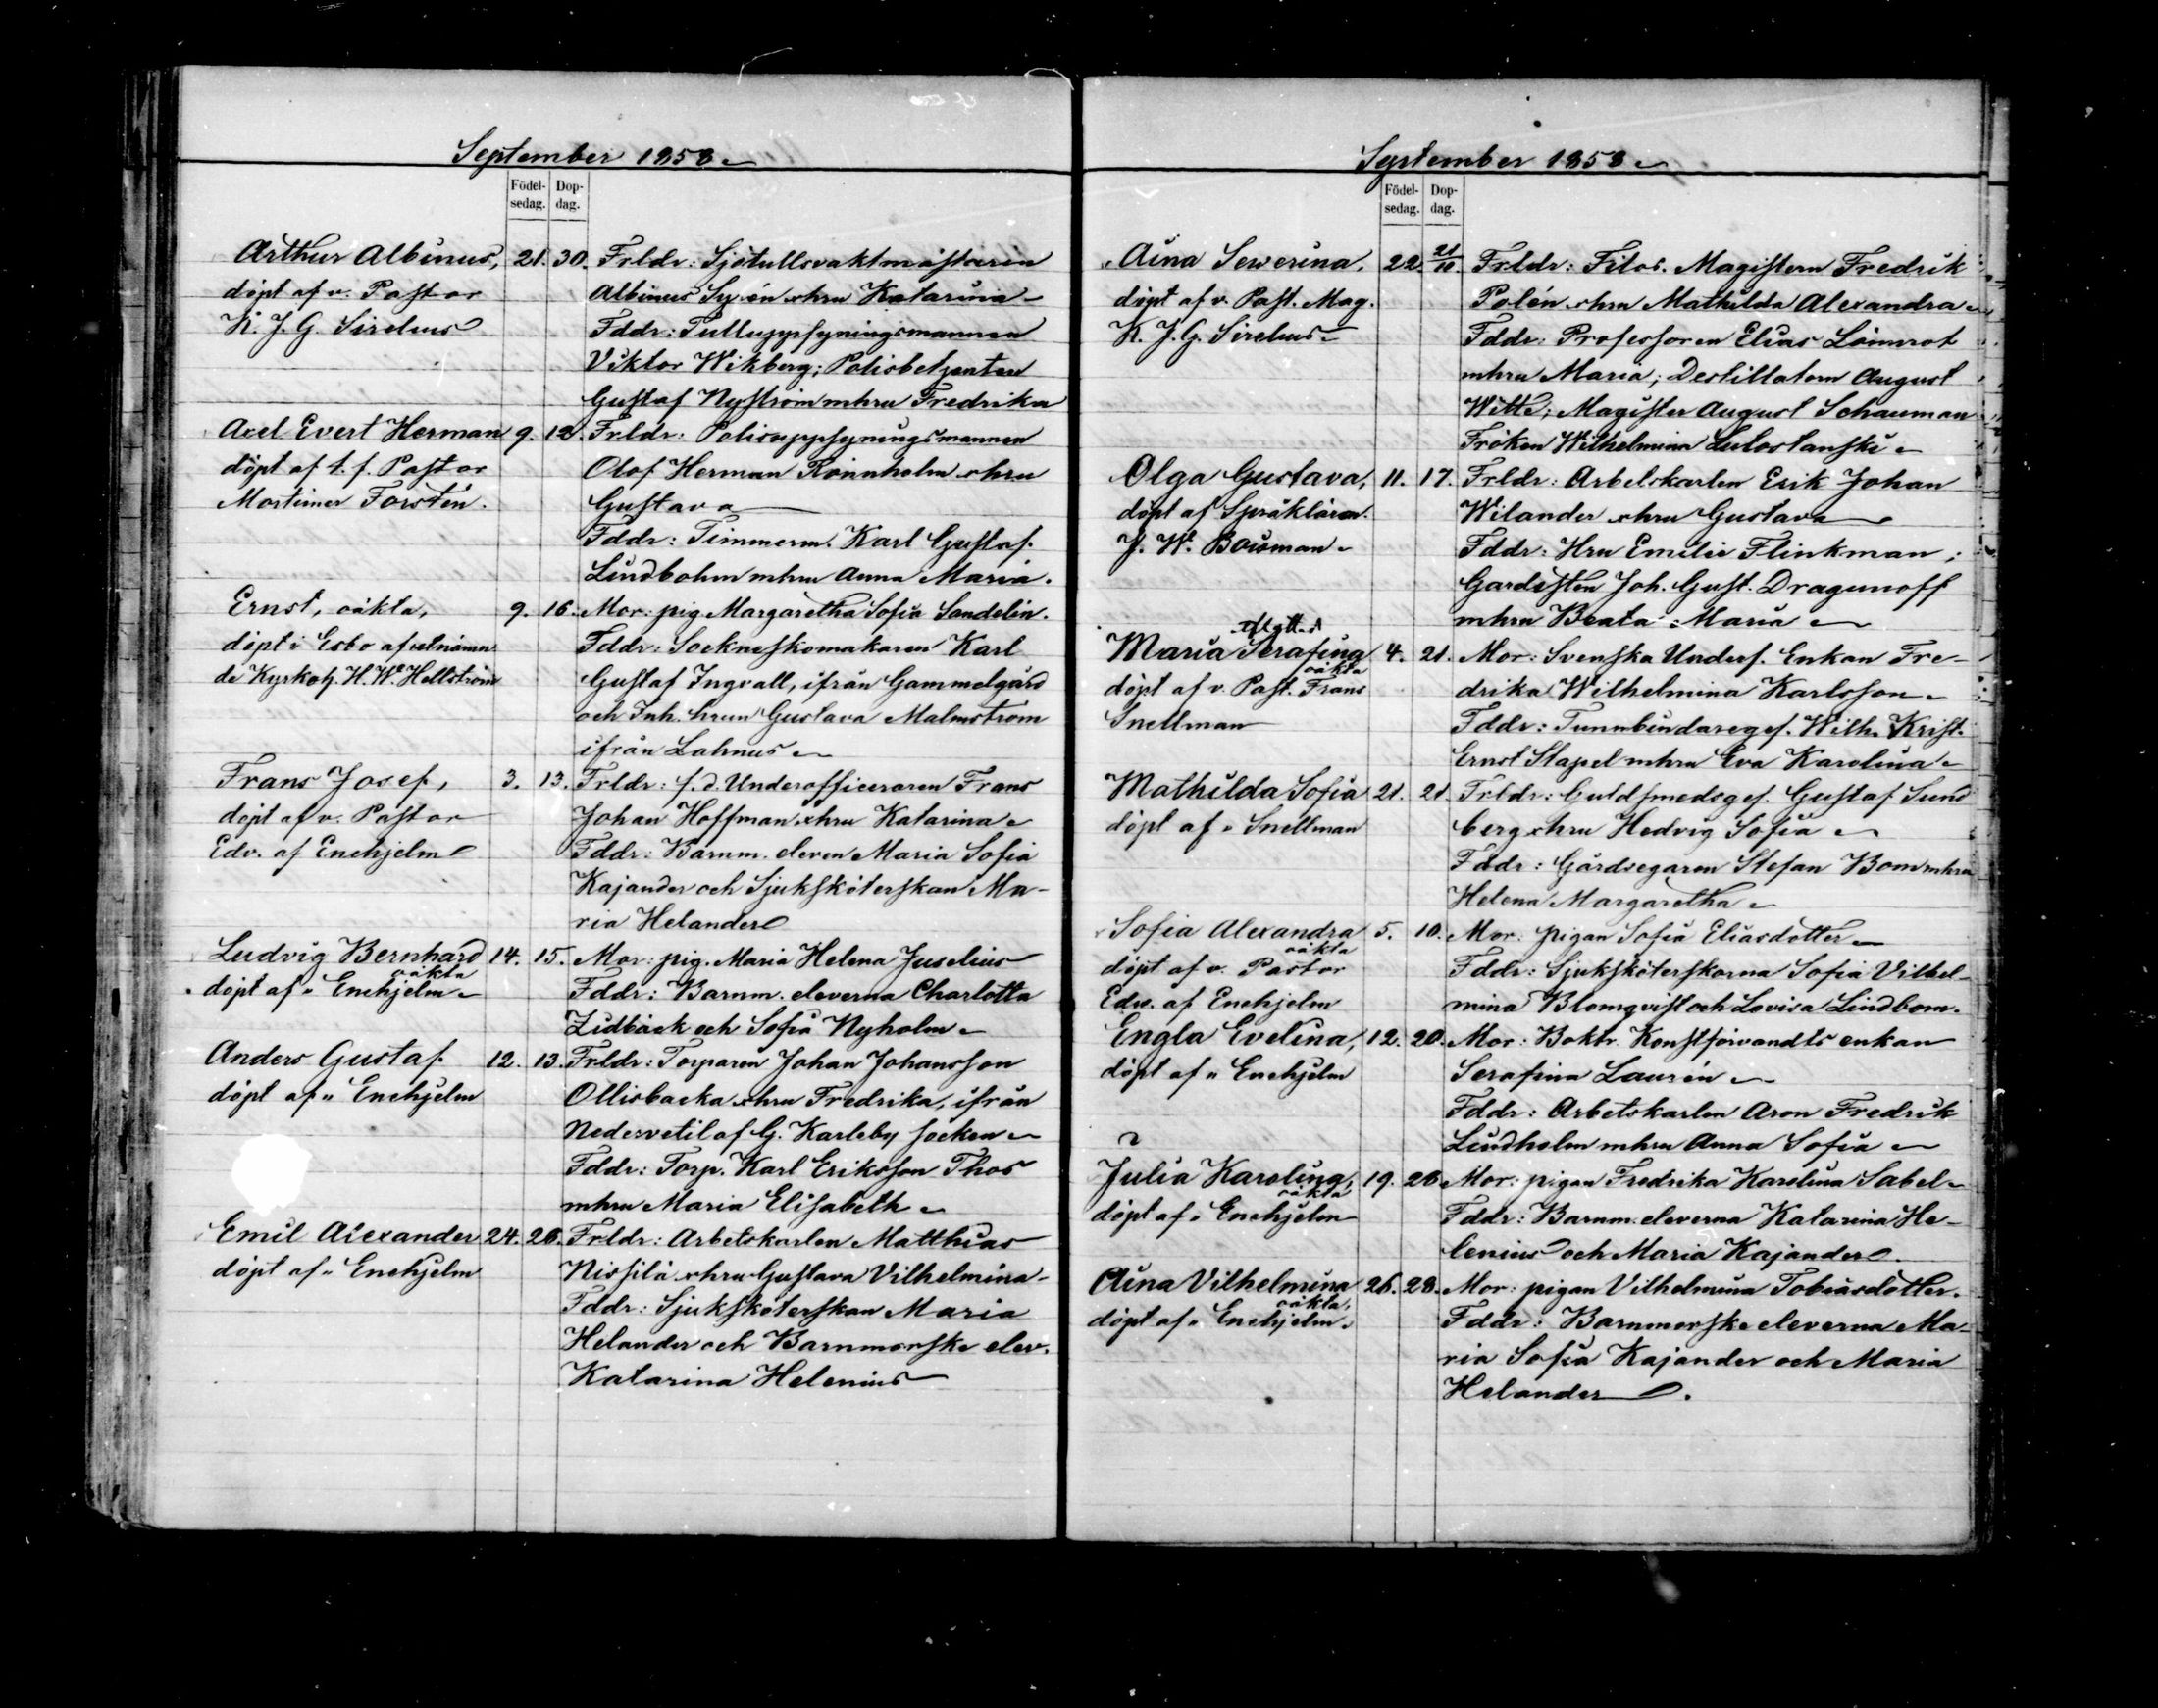 September 1858
Födel-
sedag.
Dop-
dag.
Arthur Albinus, 21. 30. Frldr: Sjötullsvaktmästaren
döpt af v. Pastor Albinus Syrén o hru Katarina
K. J. G. Sirelius Fddr: Tulluppsyningsmannen
Viktor Wikberg; Polisbetjenten
Gustaf Nyström m hru Fredrika
Axel Evert Herman 9. 12. Frldr: Polisuppsyningsmannen
döpt af t. f. Pastor Olof Herman Rönnholm o hru
Mortimer Forstén. Gustava
Fddr: Timmerm. Karl Gustaf
Lindbohm m hru Anna Maria.
Ernst, oäkta, 9. 16. Mor: pig. Margaretha Sofia Sandelin.
döpt i Esbo af utnämn Fddr: Sockneskomakaren Karl
de Kyrkoh. H. W. Hellström Gustaf Ingvall, ifrån Gammelgård
och Inh. hrun Gustava Malmström
ifrån Lahnus
Frans Josef, 3. 13. Frldr: f. d. Underofficeraren Frans
döpt af v. Pastor Johan Hoffman o hru Katarina
Edv. af Enehjelm Fddr: Barnm. eleven Maria Sofia
Kajander och Sjuksköterskan Ma-
ria Helander
Ludvig Bernhard 14. 15. Mor: pig. Maria Helena Juselius
oäkta
döpt af " Enehjelm Fddr: Barnm. eleverna Charlotta
Lidbäck och Sofia Nyholm
Anders Gustaf 12. 13. Frldr: Torparen Johan Johansson
döpt af " Enehjelm Ollisbacka o hru Fredrika, ifrån
Nedervetil af G. Karleby socken
Fddr: Torp. Karl Eriksson Thos
m hru Maria Elisabeth
Emil Alexander 24. 26. Frldr: Arbetskarlen Matthias
döpt af " Enehjelm Nissilä o hru Gustava Vilhelmina
Fddr: Sjuksköterskan Maria
Helander och Barnmorske elev.
Katarina Helenius
September 1858
Födel-
sedag.
Dop-
dag.
Aina Sewerina, 22. 21/10. Frldr: Filos. Magistern Fredrik
döpt af v. Past. Mag. Polén o hru Mathilda Alexandra
K. J. G. Sirelius Fddr: Professoren Elias Lönnrot
m hru Maria; Destillatorn August
Witte; Magister August Schauman
Fröken Wilhelmina Lutostanski
Olga Gustava, 11. 17. Frldr: Arbetskarlen Erik Johan
döpt af Språklären. Wilander o hru Gustava
J. W. Bouman Fddr: Hru Emilie Flinkman;
Gardisten Joh. Gust. Dragunoff
m hru Beata Maria
Maria Serafina 4. 21. Mor: Svenska Unders. Enkan Fre-
oäkta
döpt af v. Past. Frans drika Wilhelmina Karlsson
Snellman Fddr: Tunnbindareges. Wilh. Krist.
Ernst Stapel m hru Eva Karolina
Mathilda Sofia 21. 21. Frldr: Guldsmedsges. Gustaf Sund
döpt af " Snellman berg o hru Hedvig Sofia
Fddr: Gårdsegaren Stefan Bom m hru
Helena Margaretha
Sofia Alexandra 5. 10. Mor: pigan Sofia Eliasdotter
oäkta
döpt af v. Pastor Fddr: Sjuksköterskorna Sofia Vilhel-
Edv. af Enehjelm mina Blomqvist och Lovisa Lindbom.
Engla Evelina, 12. 20. Mor: Boktr. Konstförvandts enkan
döpt af " Enehjelm Serafina Laurén
Fddr: Arbetskarlen Aron Fredrik
Lindholm m hru Anna Sofia
Julia Karolina, 19. 26. Mor: pigan Fredrika Karolina Sabel
oäkta
döpt af " Enehjelm Fddr: Barnm. eleverna Katarina He-
lenius och Maria Kajander
Aina Vilhelmina 26. 28. Mor: pigan Vilhelmina Tobiasdotter.
oäkta,
döpt af " Enehjelm. Fddr: Barnmorske eleverna Ma-
ria Sofia Kajander och Maria
Helander.